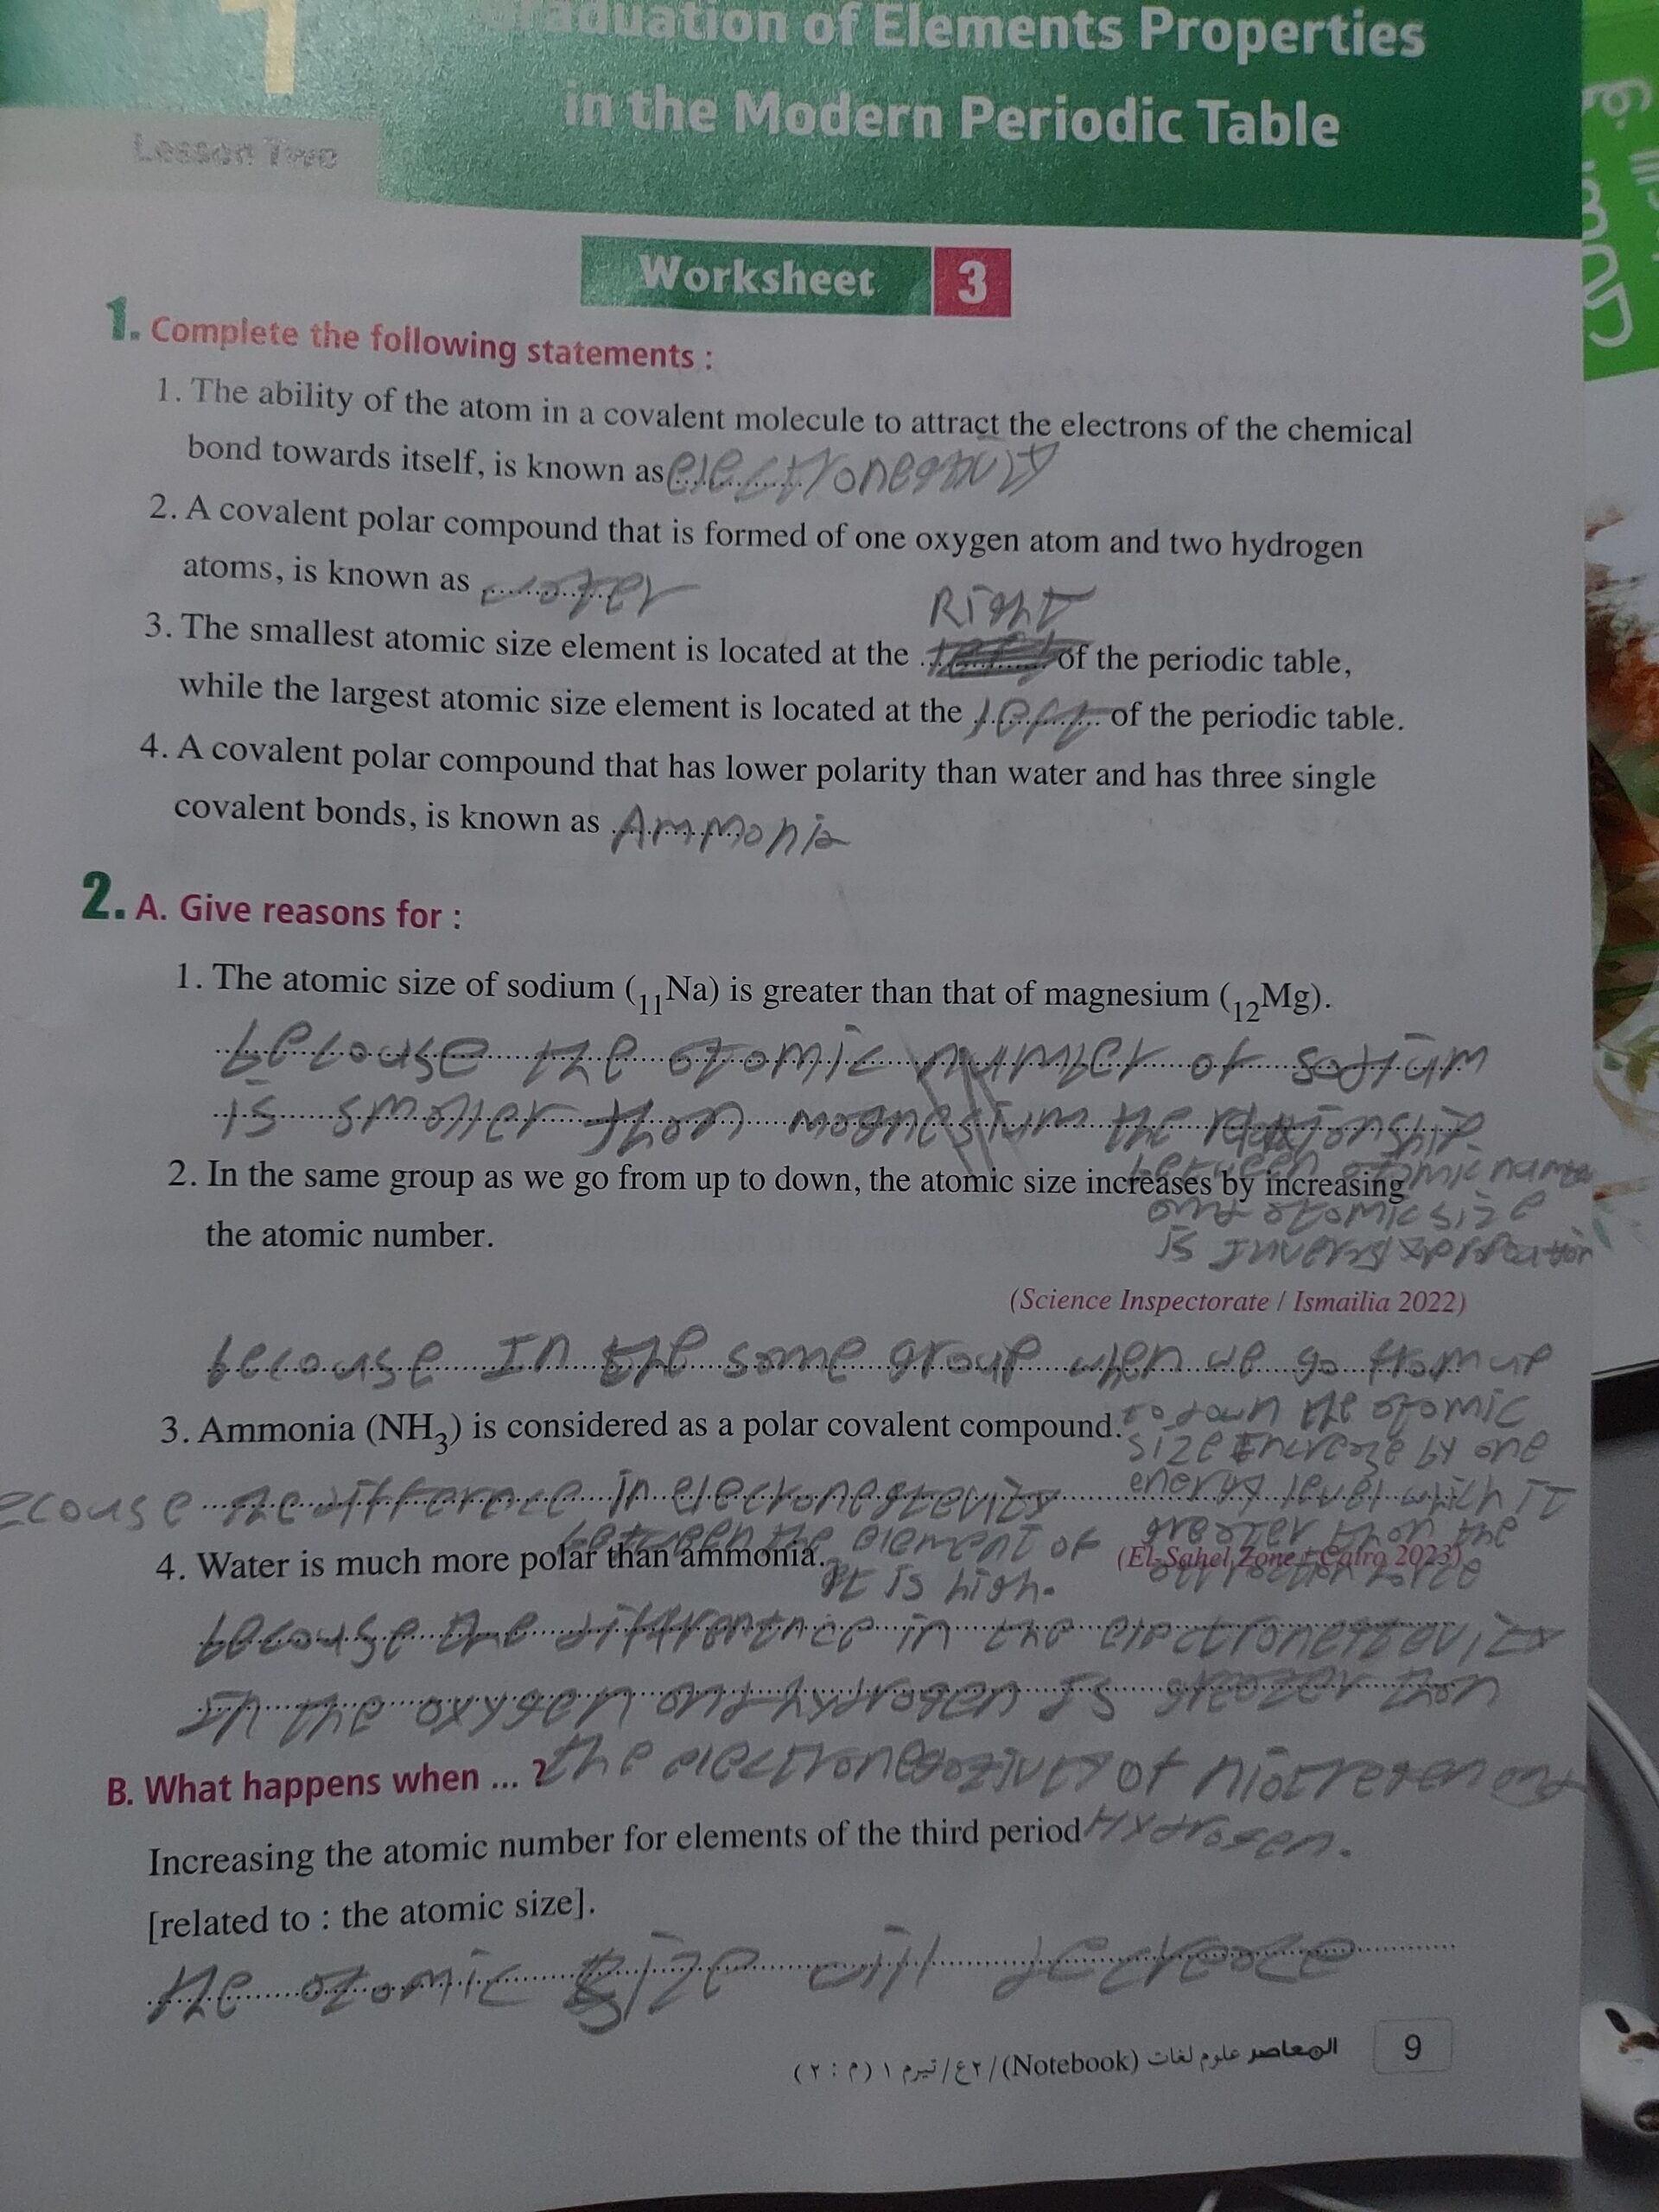 Graduation of Elements Properties
in the Modern Periodic Table
Lesson Two
Worksheet 3
1. Complete the following statements :
1. The ability of the atom in a covalent molecule to attract the electrons of the chemical
bond towards itself, is known as
2. A covalent polar compound that is formed of one oxygen atom and two hydrogen
atoms, is known as water
Right
3. The smallest atomic size element is located at the of the periodic table,
while the largest atomic size element is located at the left of the periodic table.
4. A covalent polar compound that has lower polarity than water and has three single
covalent bonds, is known as Ammonia
2. A. Give reasons for :
1. The atomic size of sodium (₁₁Na) is greater than that of magnesium (₁₂Mg).
because the atomic number of sodium
is smaller than magnesium the relationship
between atomic
2. In the same group as we go from up to down, the atomic size increases by increasing
and atomic size
the atomic number.
is
(Science Inspectorate / Ismailia 2022)
because In the same group when we go from up
to down the atomic
3. Ammonia (NH₃) is considered as a polar covalent compound.
size by one
energy level
ecause the difference in
greater than the
between the element of
4. Water is much more polar than ammonia. (El-Sahel Zone - Cairo 2023)
attraction force
It is high.
because the in the
In the oxygen and hydrogen Is greater than
the of and
B. What happens when ... ?
Hydrogen.
Increasing the atomic number for elements of the third period
[related to : the atomic size].
the atomic size will
المعاصر علوم لغات (Notebook) / ٢ع / تيرم ١ (م : ٢)
9